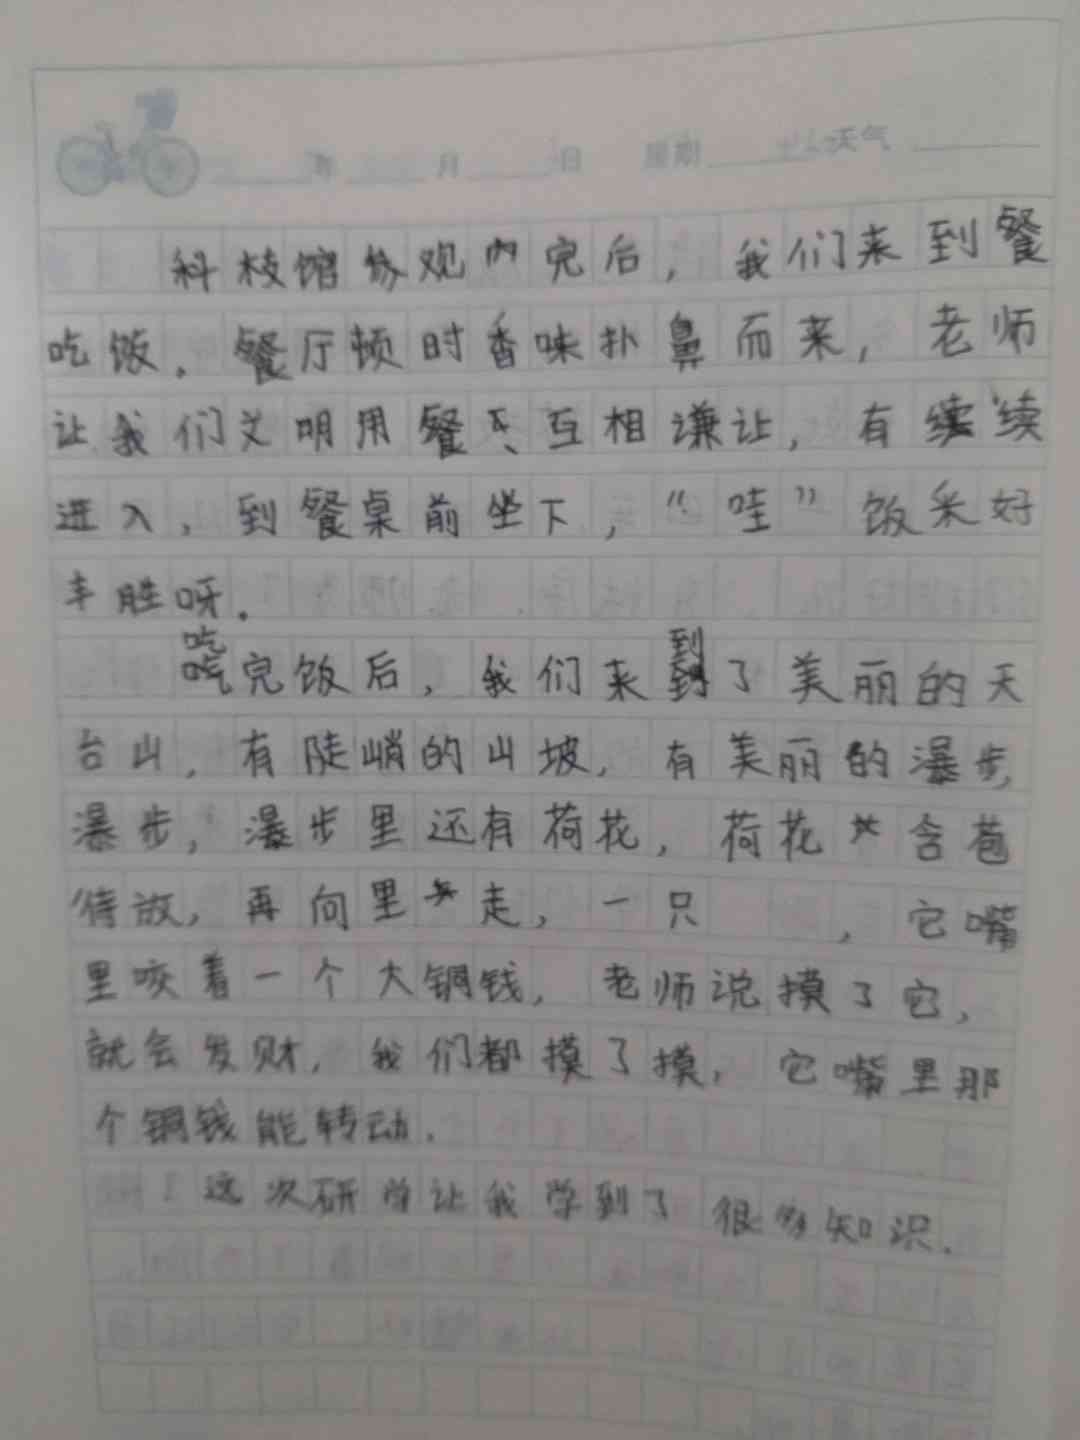 年 月 日 星期 天气
科枝馆参观内完后，我们来到餐
吃饭．餐厅顿时香味扑鼻而来，老师
让我们文明用餐、互相谦让，有续续
进入，到餐桌前坐下，“哇”饭米好
丰胜呀．
吃完饭后，我们来到了美丽的天
台山，有陡峭的山坡，有美丽的瀑步，
瀑步，瀑步里还有荷花，荷花含苞
待放，再向里走，一只 ，它嘴
里咬着一个大铜钱，老师说摸了它，
就会发财，我们都摸了摸，它嘴里那
个铜钱能转动．
这次研学让我学到了很多知识．